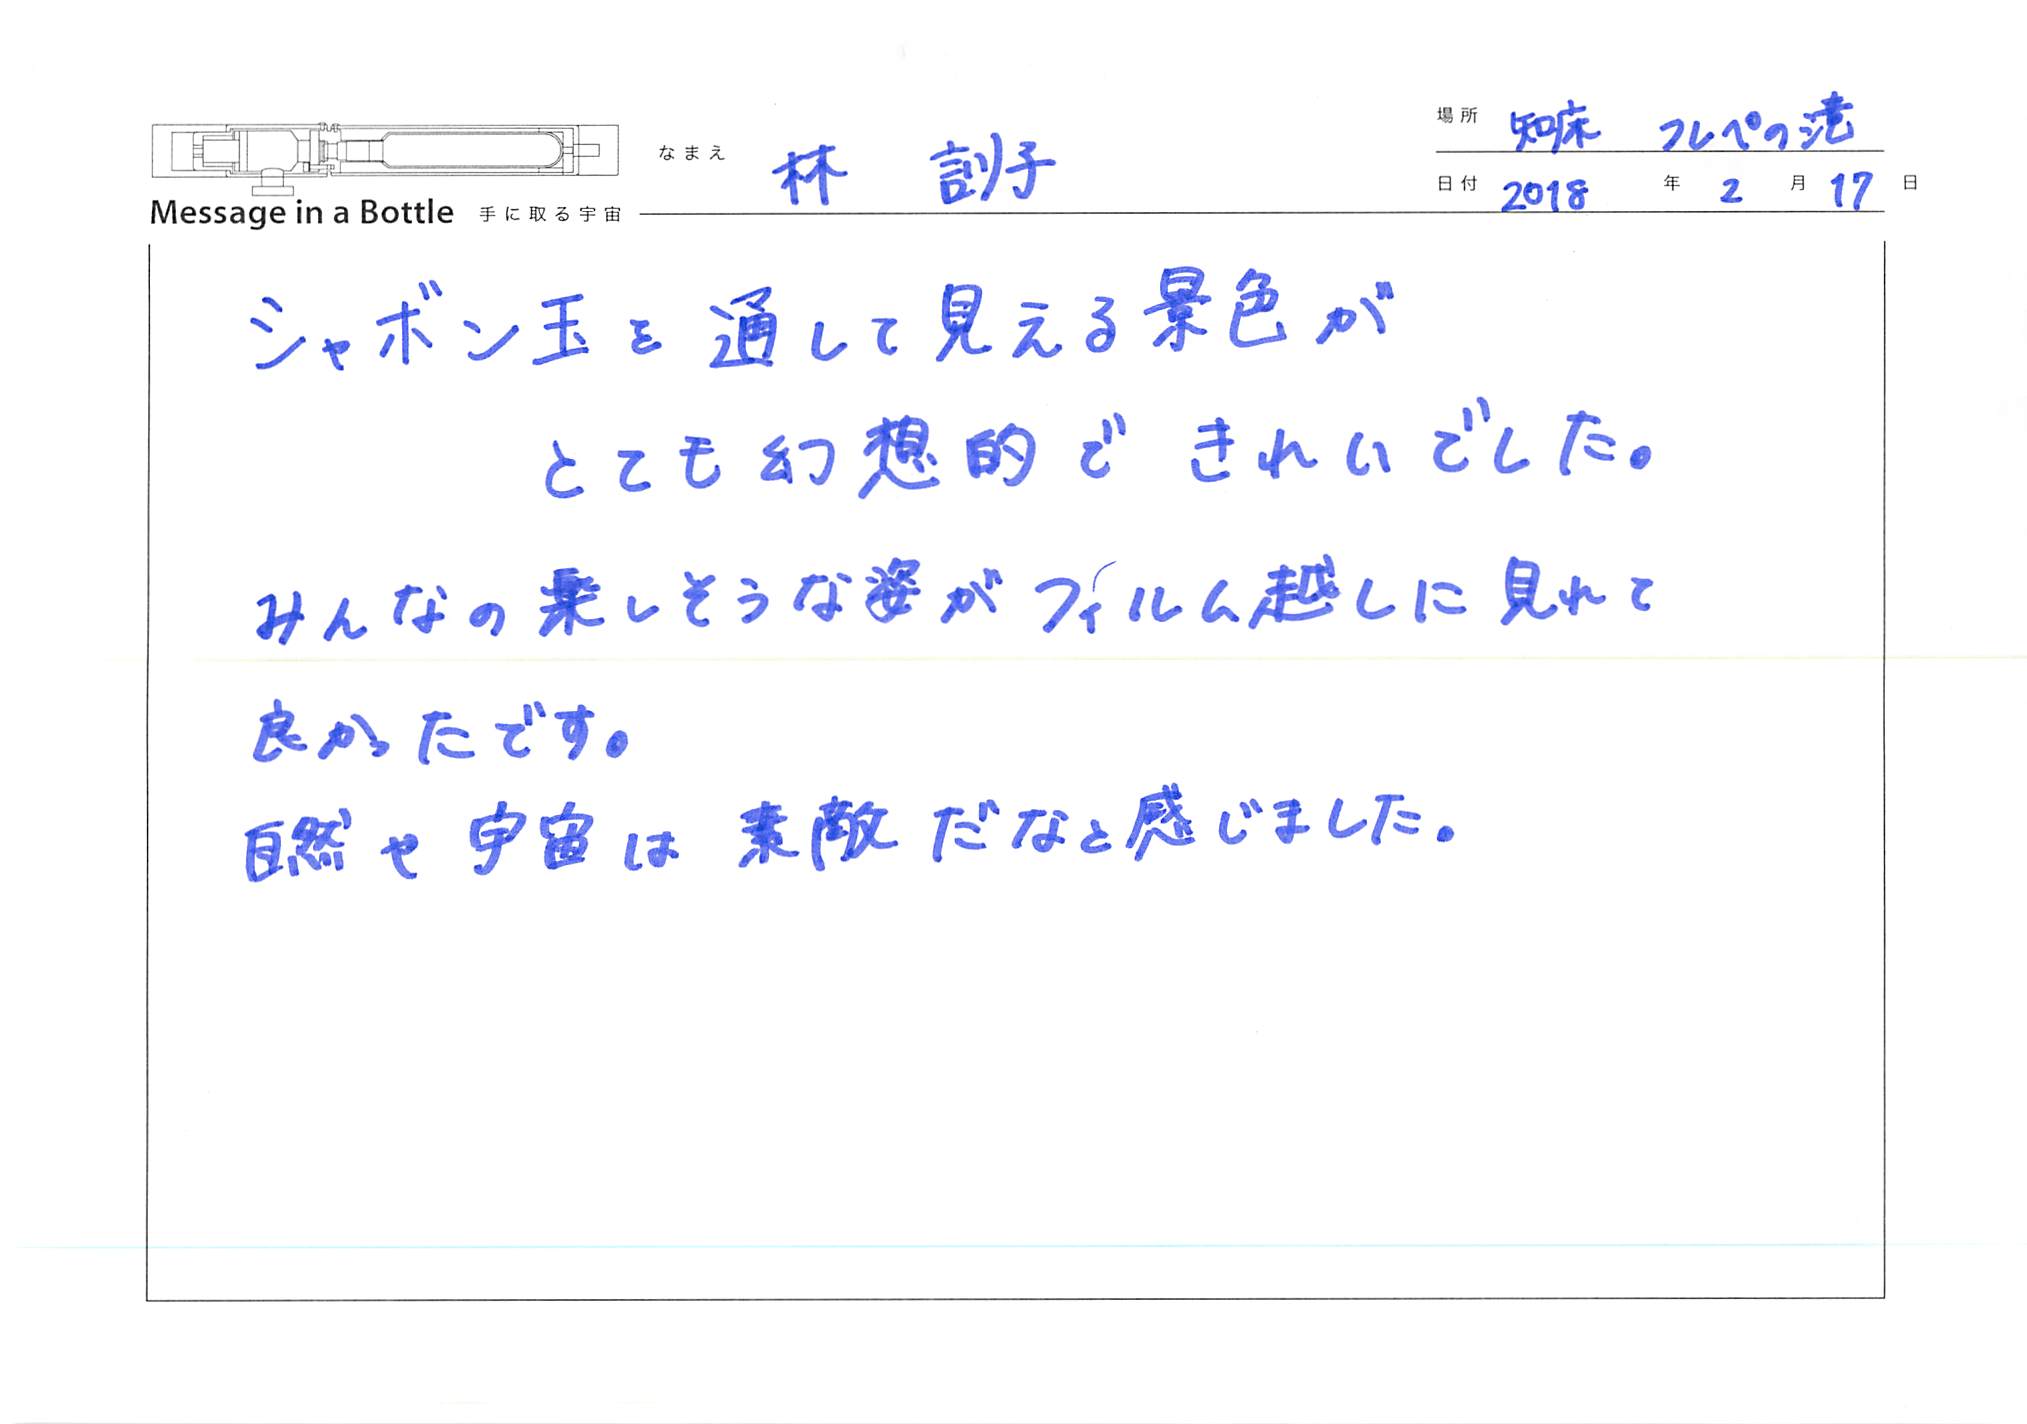 場所 知床 フレペの滝
なまえ 林 訓子
日付 2018 年 2 月 17 日
Message in a Bottle 手に取る宇宙
シャボン玉を通して見える景色が
とても幻想的できれいでした。
みんなの楽しそうな姿がフィルム越しに見れて
良かったです。
自然や宇宙は素敵だなと感じました。